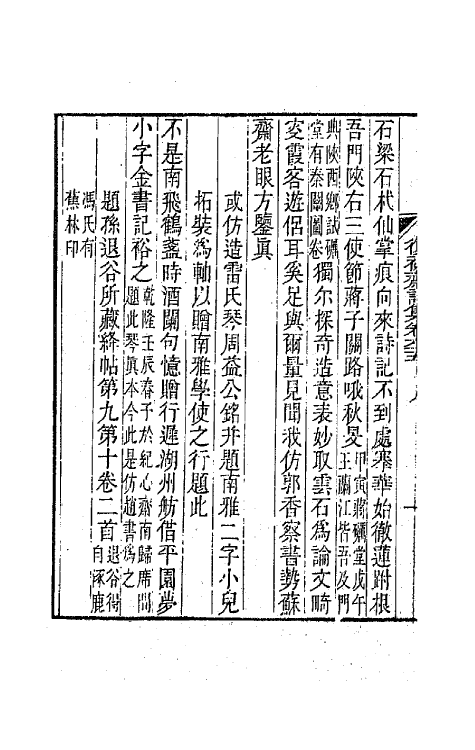 石梁石栿仙掌痕向來詩記不到處搴華始徹蓮跗根
吾門陝右三使節蔣子關路哦秋旻甲寅蔣礪堂戊午王蘭江皆吾及門
典陝西鄉試礪堂有秦關圖卷獨尔探奇造意表妙取雲石爲論文畸
叟霞客遊侶耳奚足與爾量見聞我仿郭香察書勢蘇
齋老眼方鑒眞
或仿造雷氏琴周益公銘并題南雅二字小兒
拓裝爲軸以贈南雅學使之行題此
不是南飛鶴盞時酒闌句憶贈行遲湖州舫借平園夢
小字金書記裕之乾隆壬辰春予於紀心齋南歸席間題此琴眞本今此是仿趙書爲之
題孫退谷所藏絳帖第九第十卷二首退谷得自涿鹿
馮氏有蕉林印